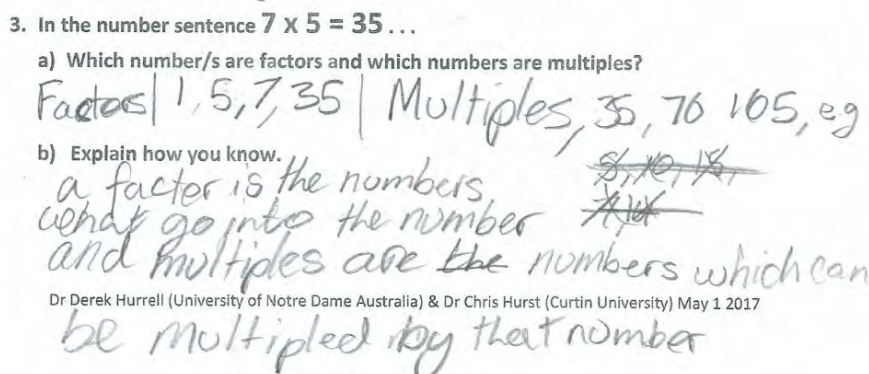 3. In the number sentence 7 x 5 = 35...
a) Which number/s are factors and which numbers are multiples?
Factors| 1, 5, 7, 35 | Multiples, 35, 70 105, eg
b) Explain how you know.
5, 10, 15,
7, 14
a factor is the numbers
what go into the number
and multiples are the numbers which can
Dr Derek Hurrell (University of Notre Dame Australia) & Dr Chris Hurst (Curtin University) May 1 2017
be multipled by that number